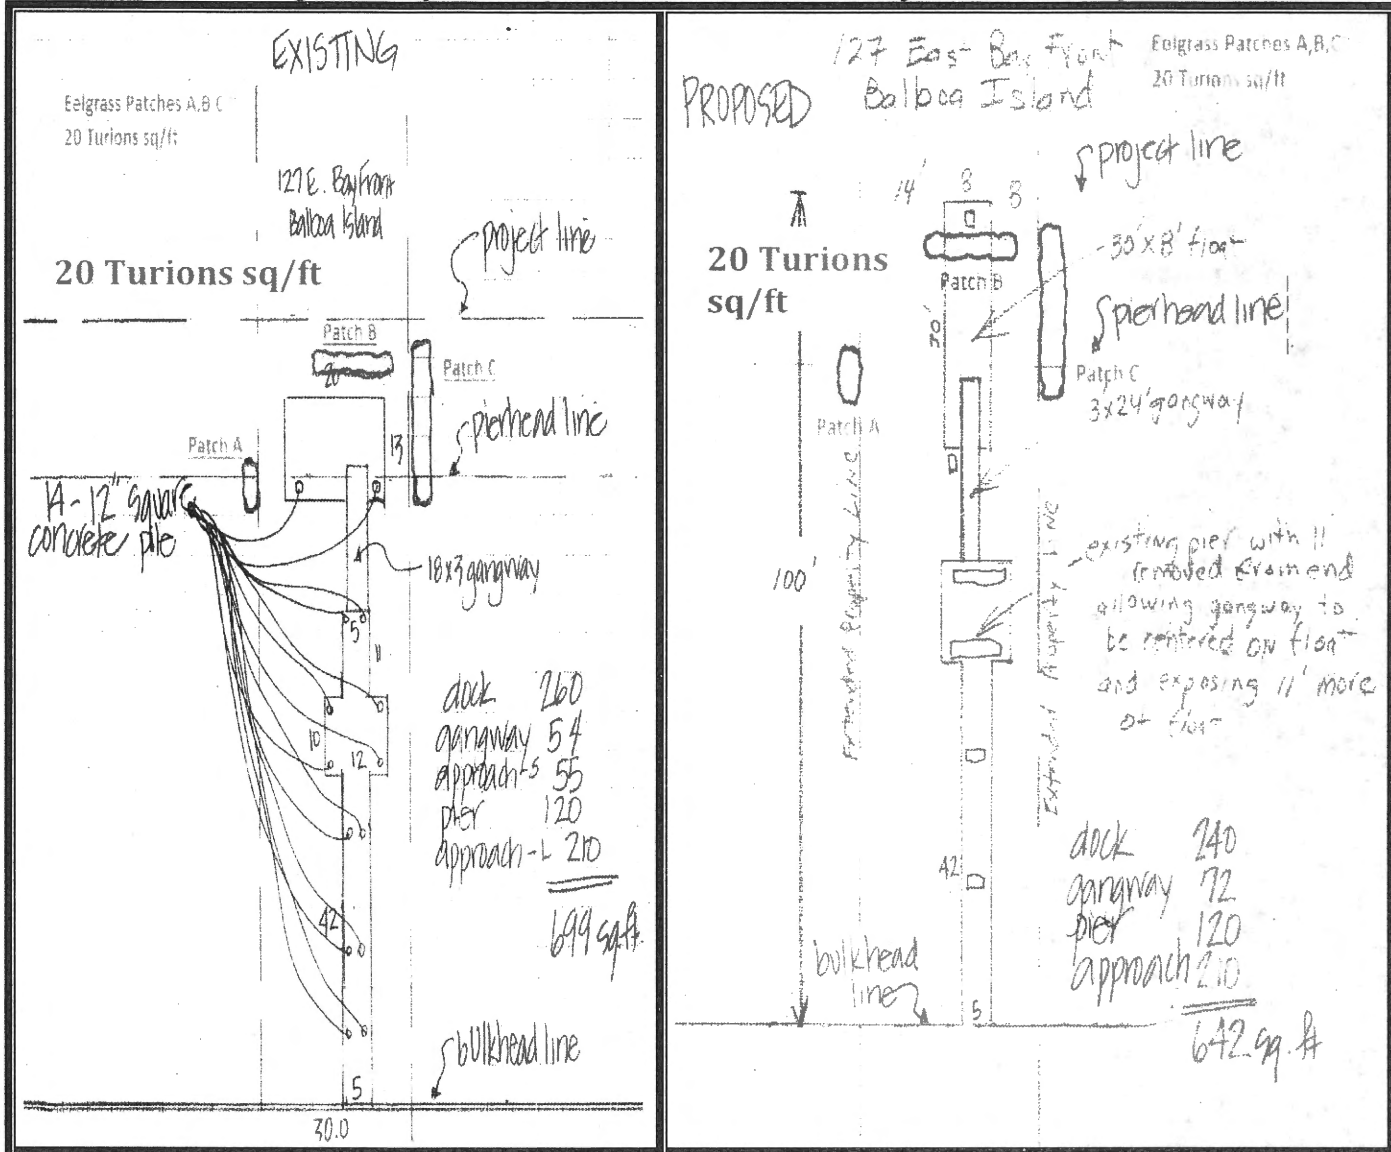 EXISTING
Eelgrass Patches A,B C
20 Turions sq/ft
127 E. Bay Front
Balboa Island
20 Turions sq/ft
project line
Patch B
20
Patch C
13
pierhead line
Patch A
14-12" square
concrete pile
18x3 gangway
5
11
10
12
dock 260
gangway 54
approach-S 55
pier 120
approach-L 210
699 sq.ft.
42
bulkhead line
5
30.0
127 East Bay Front
Balboa Island
PROPOSED
Eelgrass Patches A,B,C
20 Turions sq/ft
project line
14'
8
8
20 Turions
sq/ft
30'x8' float
Patch B
30'
pierhead line
Patch C
3x24' gangway
Patch A
100'
Extended Property Line
Extended Property LINE
existing pier with 11
removed from end
allowing gangway to
be centered on float
and exposing 11' more
of float
42
dock 240
gangway 72
pier 120
approach 210
642 sq. ft
bulkhead
line
5